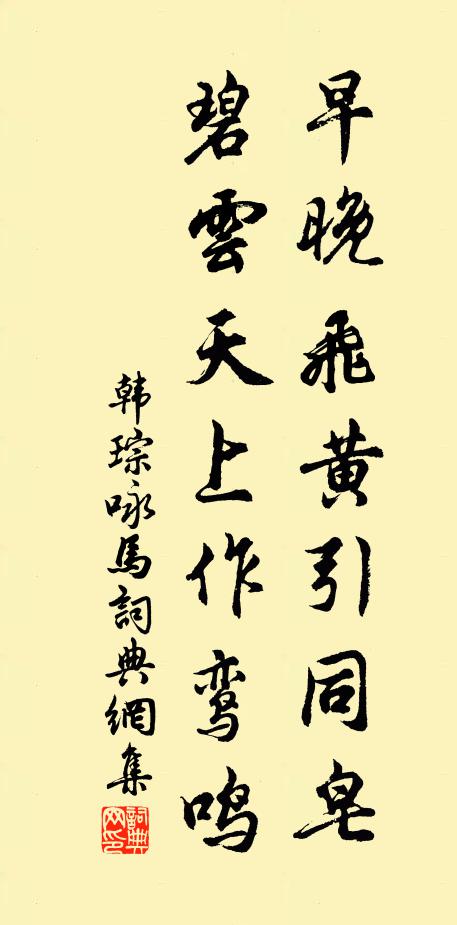 早晚飛黄引同皂
碧雲天上作鸾鸣
韩琮咏馬詞典網集
詞典網印